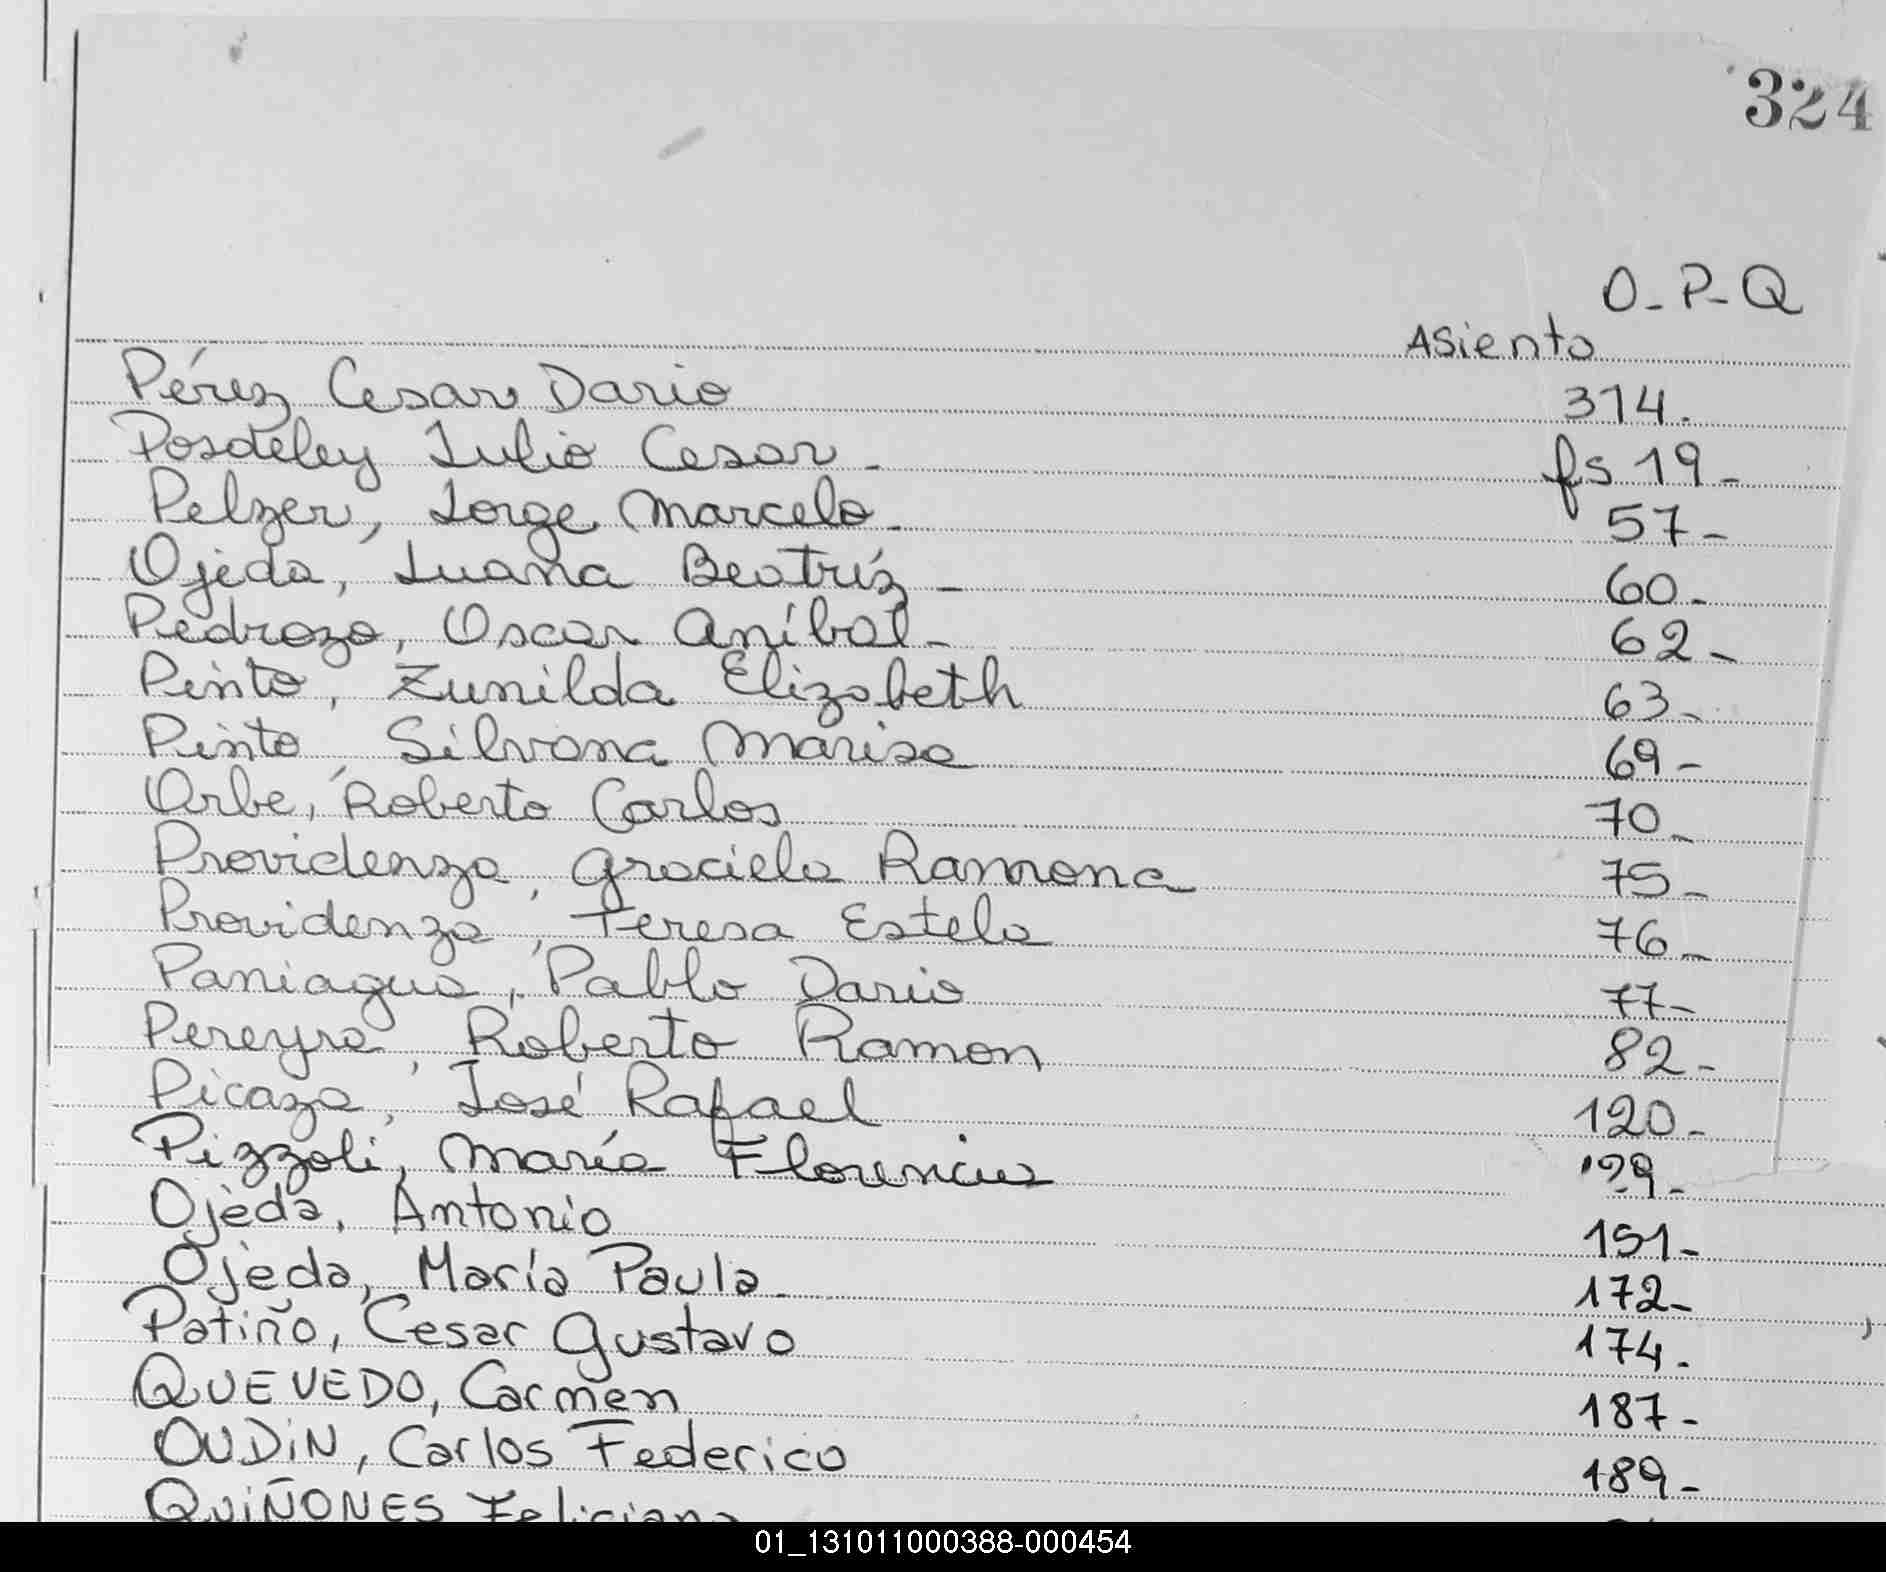 324
O-P-Q
Asiento
Pérez Cesar Dario 314.
Posdeley Julio Cesar - fs 19-
Pelzer, Jorge Marcelo - 57-
Ojeda, Juana Beatríz - 60-
Pedrozo, Oscar Aníbal - 62-
Pinto, Zunilda Elizabeth 63-
Pinto, Silvana Marisa 69-
Orbe, Roberto Carlos 70-
Providenza, Graciela Ramona 75-
Providenza, Teresa Estela 76-
Paniagua, Pablo Dario 77-
Pereyra, Roberto Ramon 82-
Picaza, José Rafael 120-
Pizzoli, María Florencia
Ojeda, Antonio 151-
Ojeda, María Paula - 172-
Patiño, Cesar Gustavo 174-
QUEVEDO, Carmen 187-
OUDiN, Carlos Federico 189-
QUiÑONES
01_131011000388-000454